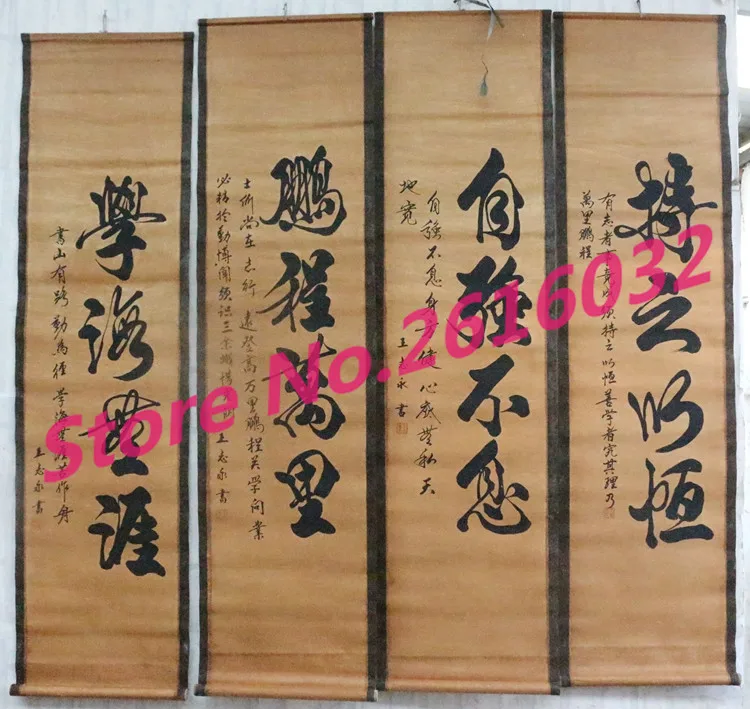 持之以恆
有志者事竟成須持之以恆善學者究其理乃
萬里鵬程
自強不息
自強不息身健心底無私天
地寬
王志永書
鵬程萬里
士所尚在志行遠登高万里鵬程关學问業
必精於勤博聞
王志永書
學海無涯
書山有路勤為徑學海無涯苦作舟
王志永書
Store No.2616032